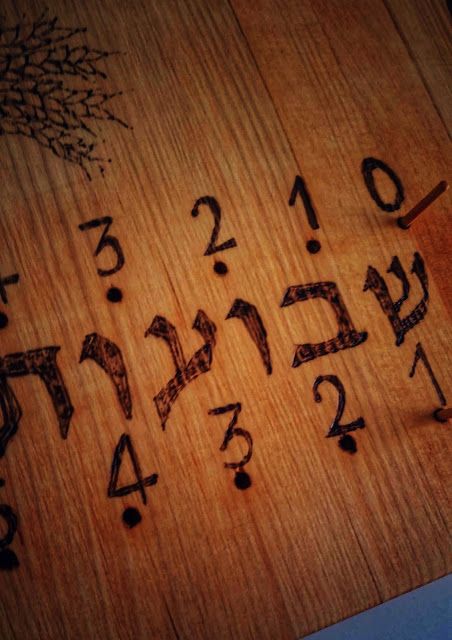 0 1 2 3 4
שבועות
1 2 3 4 5